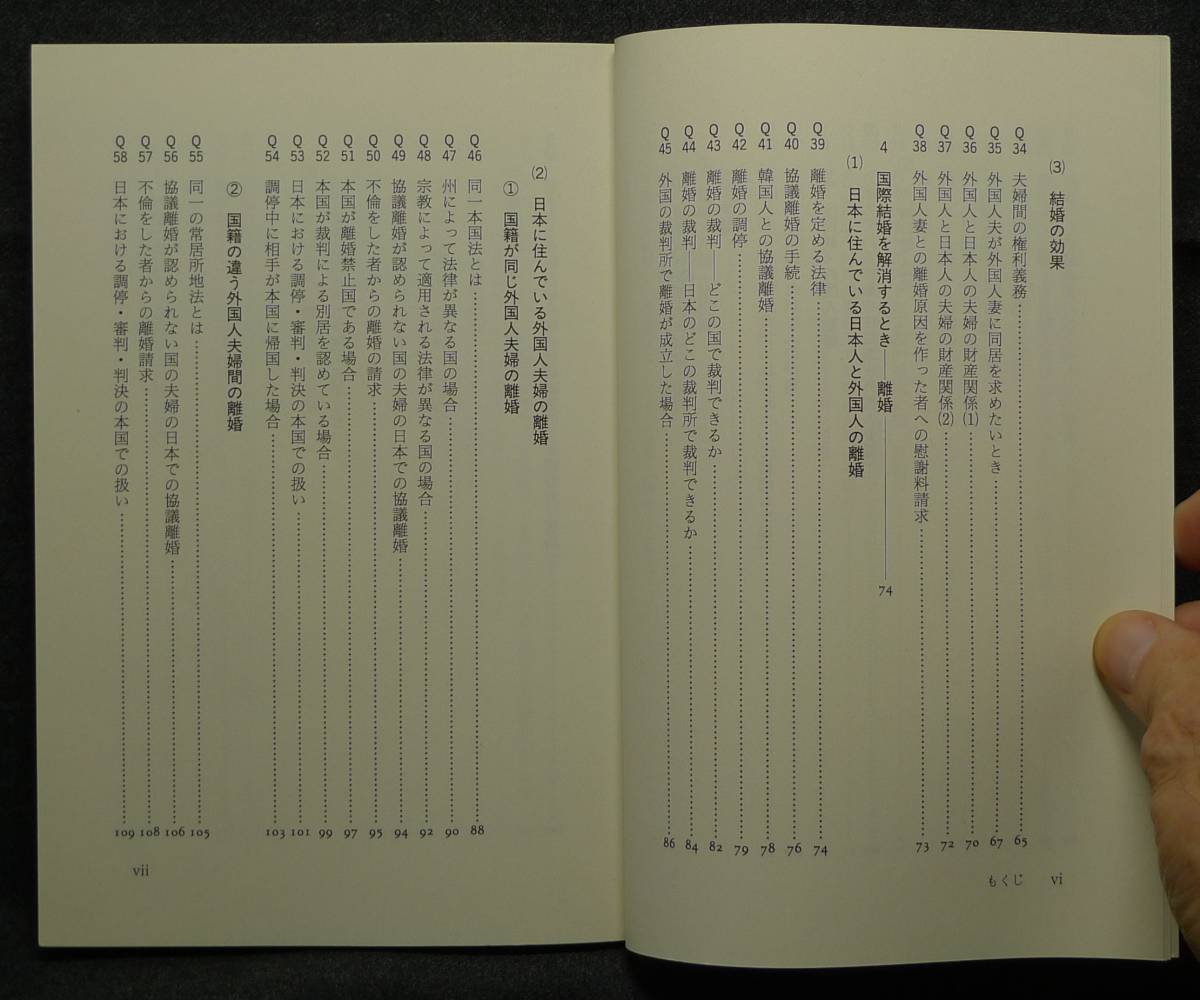 ⑶ 結婚の効果
Q34 夫婦間の権利義務 65
Q35 外国人夫が外国人妻に同居を求めたいとき 67
Q36 外国人と日本人の夫婦の財産関係⑴ 70
Q37 外国人と日本人の夫婦の財産関係⑵ 72
Q38 外国人妻との離婚原因を作った者への慰謝料請求 73
4 国際結婚を解消するとき――離婚 74
⑴ 日本に住んでいる日本人と外国人の離婚
Q39 離婚を定める法律 74
Q40 協議離婚の手続 76
Q41 韓国人との協議離婚 78
Q42 離婚の調停 79
Q43 離婚の裁判――どこの国で裁判できるか 82
Q44 離婚の裁判――日本のどこの裁判所で裁判できるか 84
Q45 外国の裁判所で離婚が成立した場合 86
もくじ vi
⑵ 日本に住んでいる外国人夫婦の離婚
① 国籍が同じ外国人夫婦の離婚
Q46 同一本国法とは 88
Q47 州によって法律が異なる国の場合 90
Q48 宗教によって適用される法律が異なる国の場合 92
Q49 協議離婚が認められない国の夫婦の日本での協議離婚 94
Q50 不倫をした者からの離婚の請求 95
Q51 本国が離婚禁止国である場合 97
Q52 本国が裁判による別居を認めている場合 99
Q53 日本における調停・審判・判決の本国での扱い 101
Q54 調停中に相手が本国に帰国した場合 103
② 国籍の違う外国人夫婦間の離婚
Q55 同一の常居所地法とは 105
Q56 協議離婚が認められない国の夫婦の日本での協議離婚 106
Q57 不倫をした者からの離婚請求 108
Q58 日本における調停・審判・判決の本国での扱い 109
vii